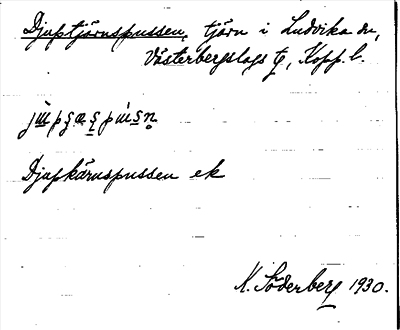 Djuptjärnspussen, tjärn i Ludvika sn,
Västerbergslags tg, Kopp. l.
Djupkärnspussen ek
K. Söderberg 1930.